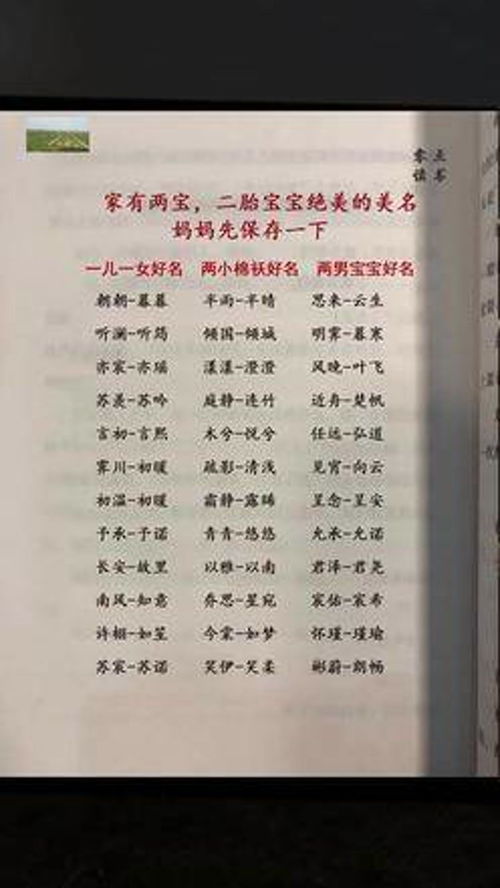 零点
读书
家有两宝，二胎宝宝绝美的美名
妈妈先保存一下
一儿一女好名 两小棉袄好名 两男宝宝好名
朝朝-暮暮 半雨-半晴 思来-云生
听澜-听筠 倾国-倾城 明霁-暮寒
亦宸-亦瑶 漾漾-澄澄 风晚-叶飞
苏羡-苏吟 庭静-连竹 近舟-楚帆
言初-言熙 木兮-悦兮 任远-弘道
霁川-初暖 疏影-清浅 见宵-向云
初温-初暖 霜静-露晞 星念-星安
予承-予诺 青青-悠悠 允承-允诺
长安-故里 以雅-以南 君泽-君尧
南风-知意 乔思-星宛 宸佑-宸希
许栩-如笙 今棠-如梦 怀瑾-瑾瑜
苏宸-苏诺 笑伊-笑柔 彬蔚-朗畅